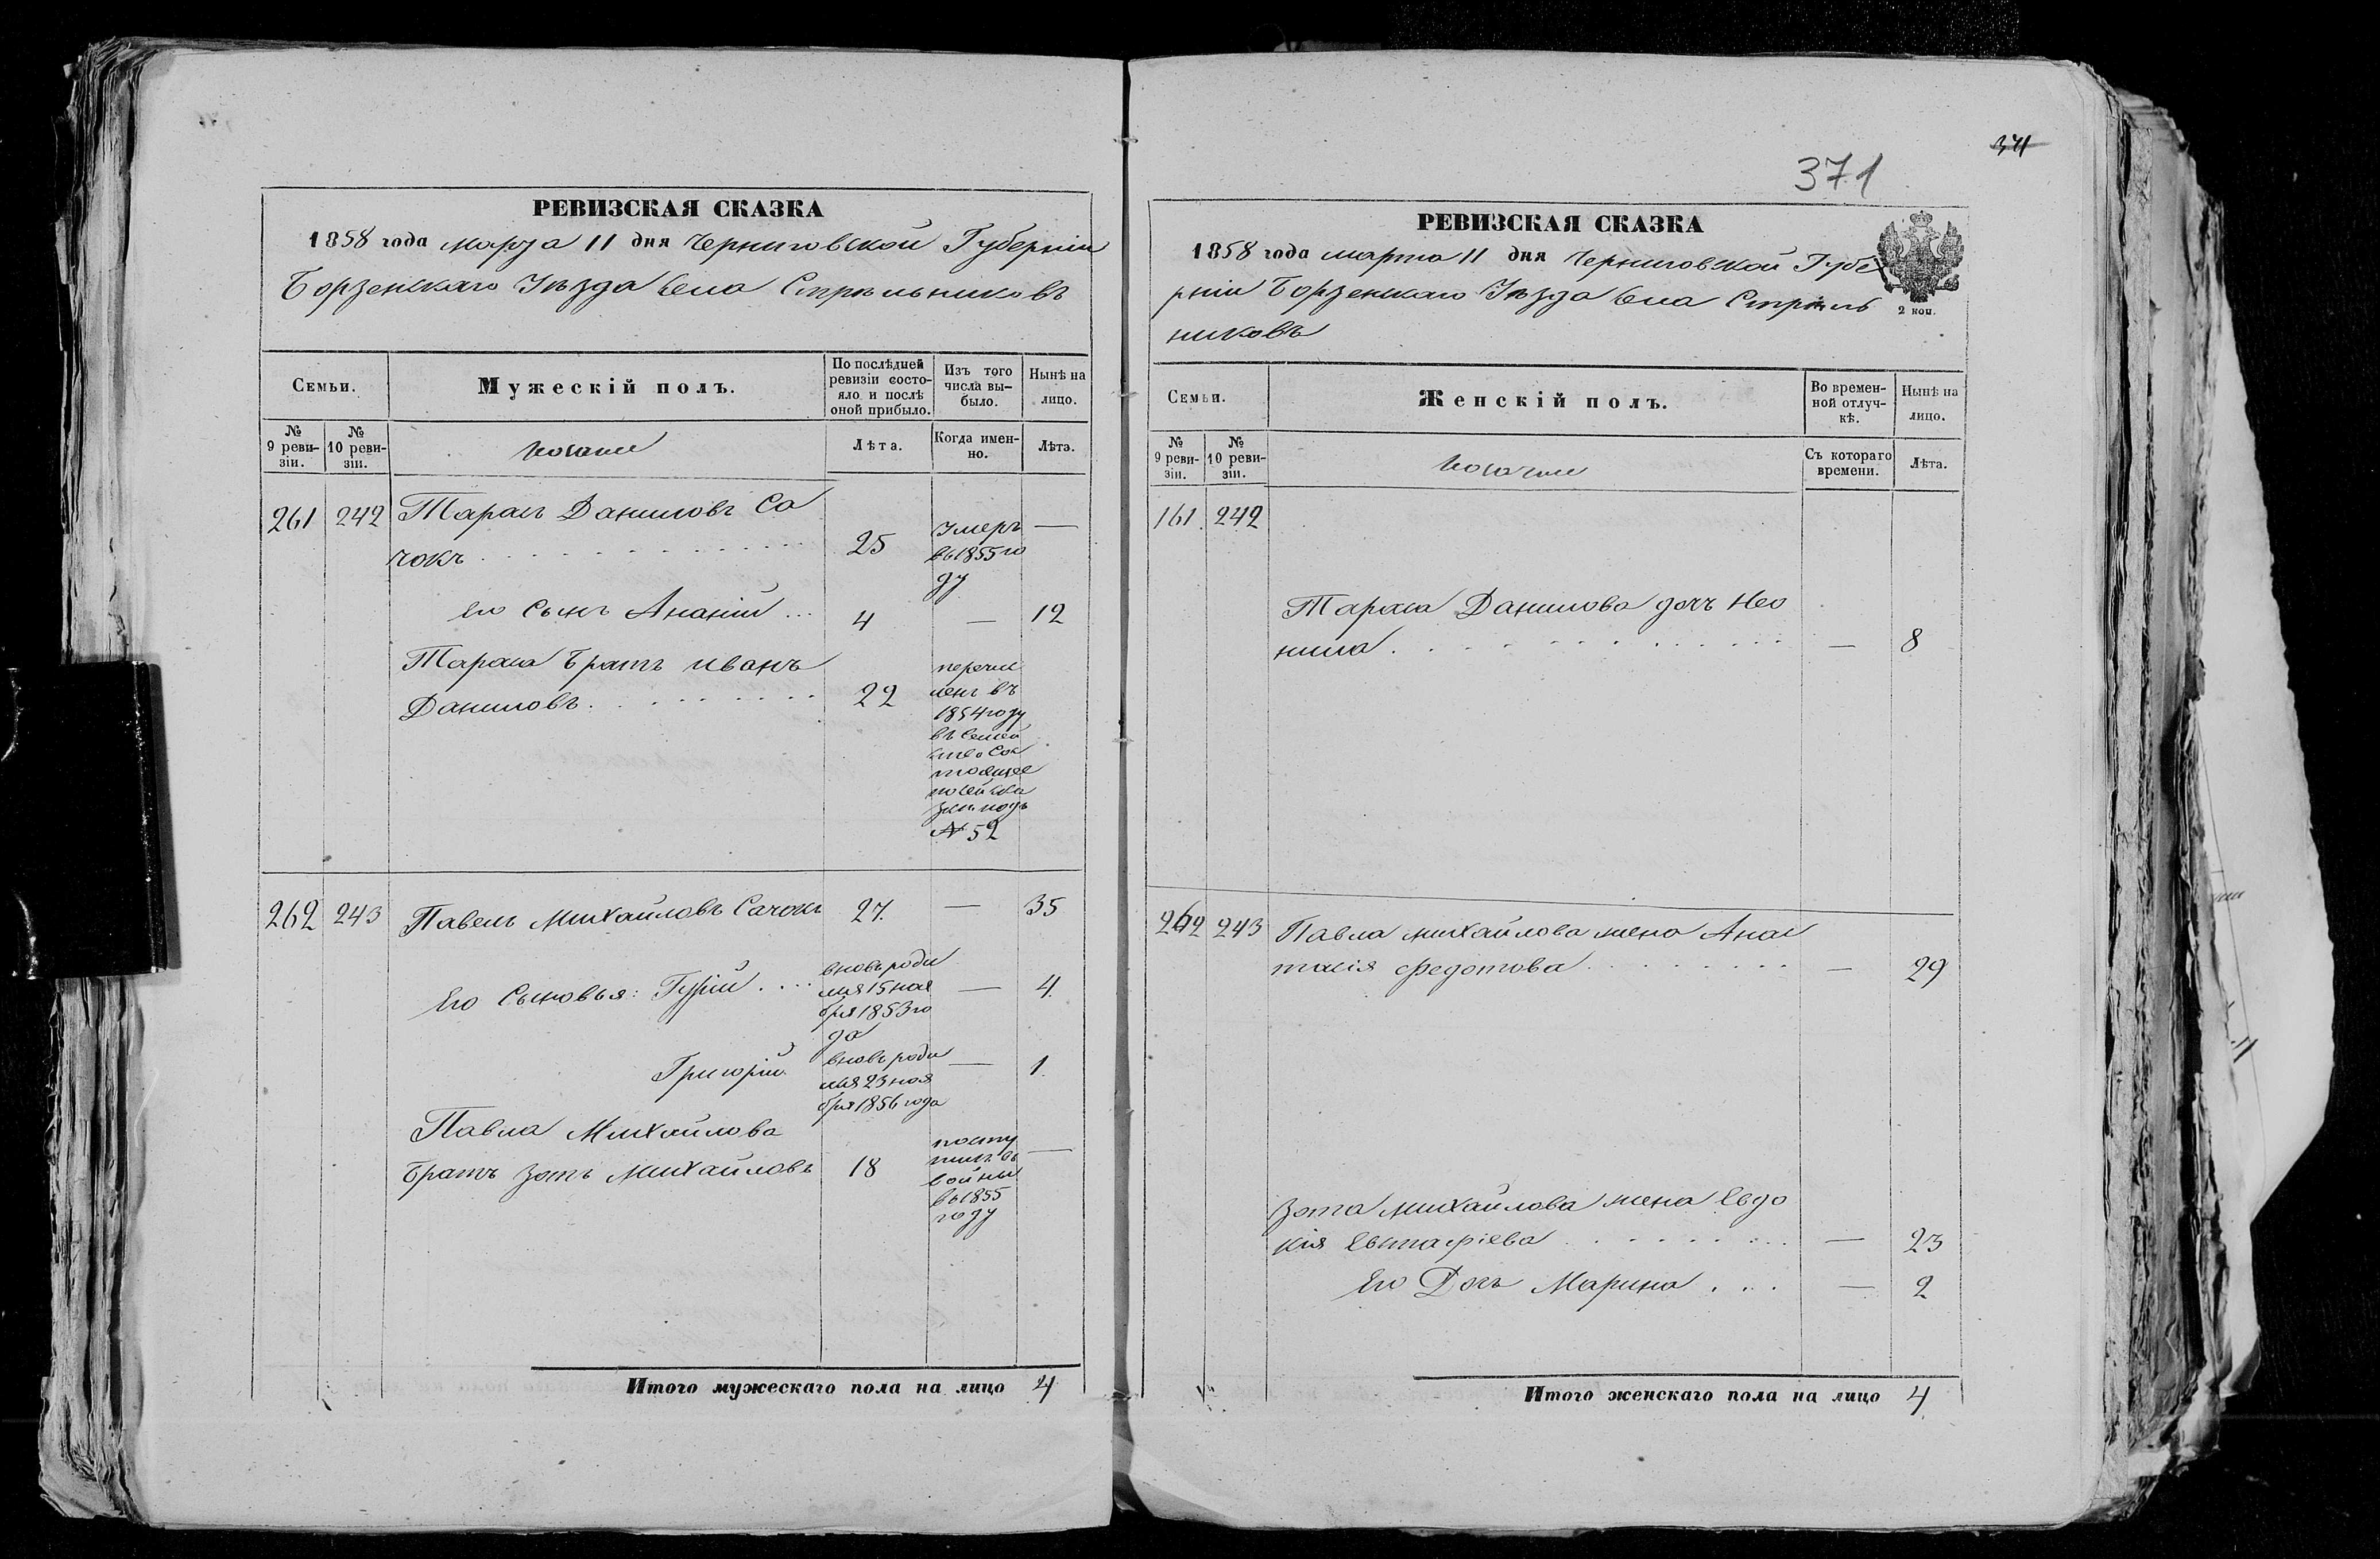 РЕВИЗСКАЯ СКАЗКА
1858 года марта 11 дня Черниговской Губерніи
Борзенскаго Уѣзда Села Стрѣльниковъ
Семьи.
Мужескій полъ.
По послѣдней ревизіи состояло и послѣ оной прибыло.
Изъ того числа выбыло.
Нынѣ на лицо.
№ 9 ревизіи.
№ 10 ревизіи.
Козаки
Лѣта.
Когда именно.
Лѣта.
261 242 Тарасъ Даниловъ Са
чокъ 25 Умеръ —
въ 1855 го
ду
его Сынъ Ананій 4 — 12
Тараса Братъ Иванъ
Даниловъ 22 перечис
ленъ въ
1854 году
въ Семей
ство Сос
тоящее
по сей ска
зкѣ подъ
№ 52
262 243 Павелъ Михайловъ Сачокъ 27. — 35
Его Сыновья: Гурій вновь роди — 4
лся 15 ноя
бря 1853 го
да
Григорій вновь роди — 1
лся 23 ноя
бря 1856 года
Павла Михайлова
Братъ Зотъ Михайловъ 18 посту —
пилъ въ
войны
въ 1855
году
Итого мужескаго пола на лицо 4
371
371
РЕВИЗСКАЯ СКАЗКА
1858 года марта 11 дня Черниговской Губе
рніи Борзенскаго Уѣзда Села Стрѣль
никовъ
2 коп.
Семьи.
Женскій полъ.
Во временной отлучкѣ.
Нынѣ на лицо.
№ 9 ревизіи.
№ 10 ревизіи.
Козачки
Съ котораго времени.
Лѣта.
161. 242
Тараса Данилова дочь Нео
нила — 8
262 243 Павла Михайлова жена Анас
тасія Федотова — 29
Зота Михайлова жена Евдо
кія Евстафіева — 23
Его Дочь Марина — 2
Итого женскаго пола на лицо 4